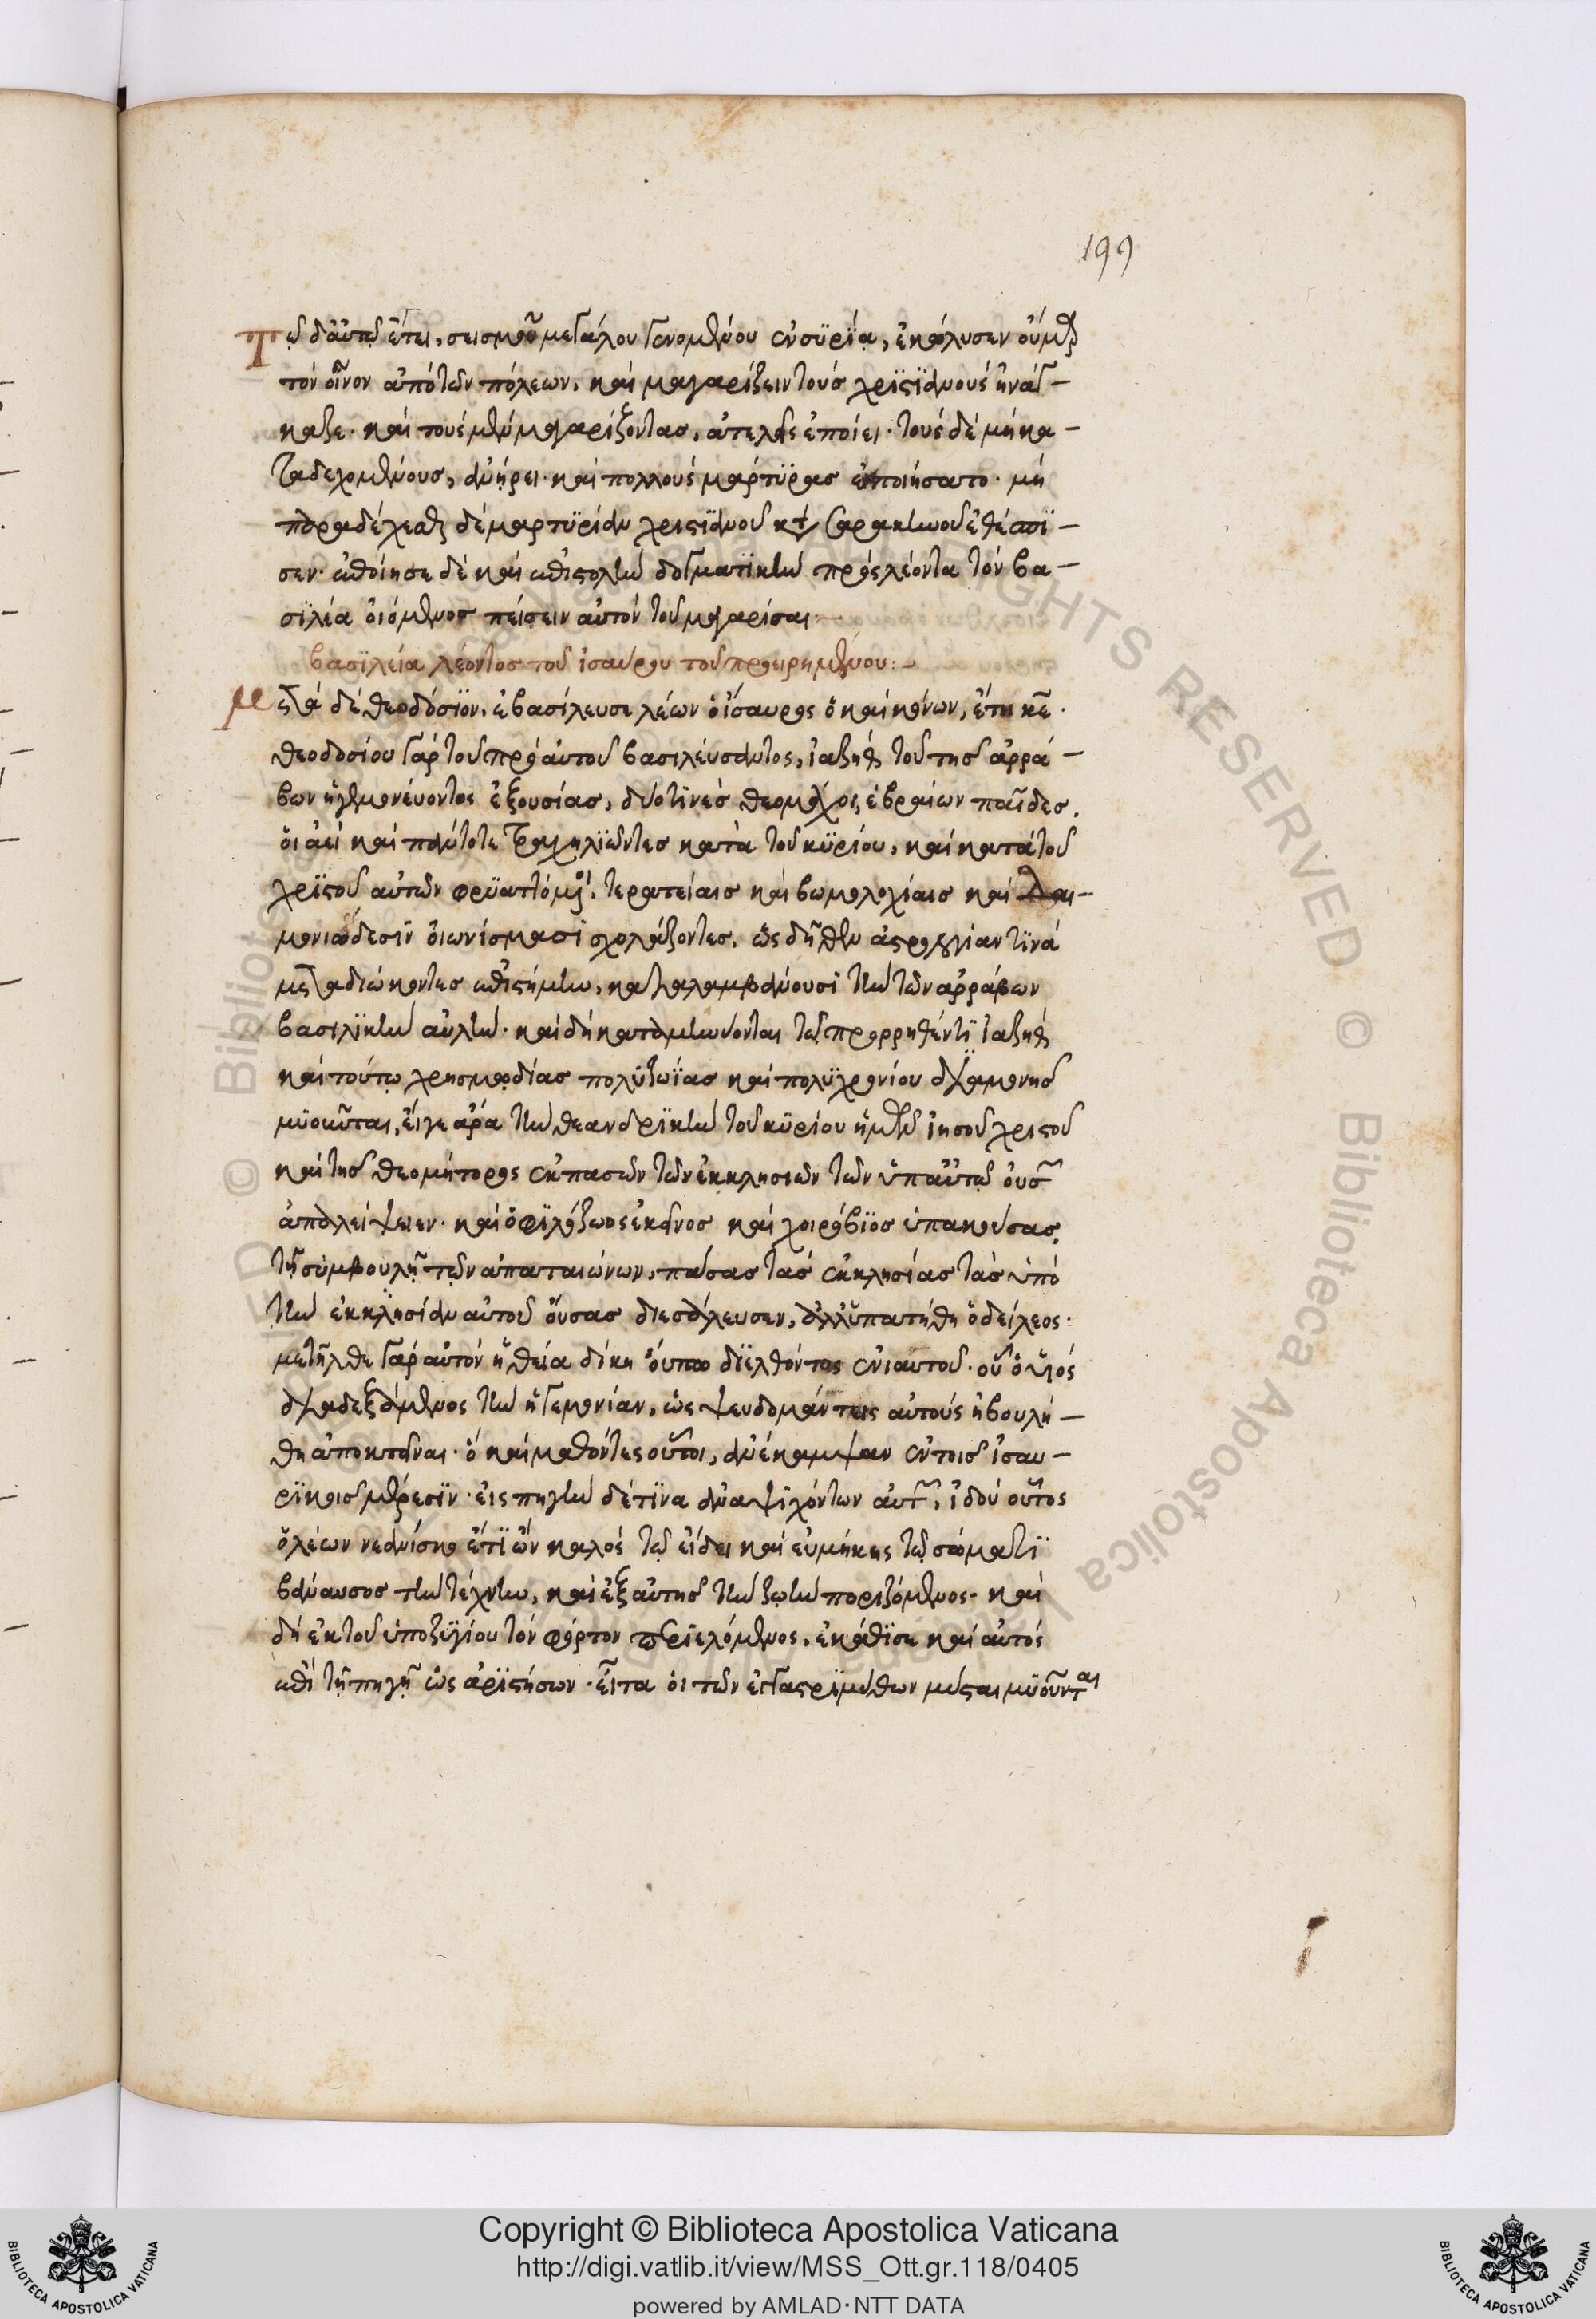 199
Τῷ δ' αὐτῷ ἔτει, σεισμοῦ μεγάλου γενομένου ἐν συρία, ἐκώλυσεν οὔμαρ
τὸν οἶνον ἀπὸ τῶν πόλεων. καὶ μαγαρίζειν τοὺς χριστϊανοὺς ἠνάγ-
καζε. καὶ τοὺς μὲν μαγαρίζοντας, ἀτελεῖς ἐποίει. τοὺς δὲ μὴ κα-
ταδεχομένους, ἀνήρει. καὶ πολλοὺς μάρτυρας ἐποιήσατο. μὴ
παραδέχεσθαι δὲ μαρτυρίαν χριστϊανοῦ κατὰ σαρακηνοῦ ἐθέσπϊ-
σεν. ἐποίησε δὲ καὶ ἐπιστολὴν δογματϊκὴν πρὸς λέοντα τὸν βα-
σϊλέα οἰόμενος πείσειν αὐτὸν τοῦ μαγαρίσαι.
βασϊλεία λέοντος τοῦ ἰσαύρου τοῦ προειρημένου:-
Μετὰ δὲ θεοδόσϊον, ἐβασίλευσε λέων ὁ ἴσαυρος ὁ καὶ κόνων, ἔτη κε.
θεοδοσίου γὰρ τοῦ πρὸ αὐτοῦ βασιλεύσαντος, ἰαζηθ τοῦ τῆς ἀρρά-
βων ἡγεμονεύοντος ἐξουσίας, δύο τινὲς θεομάχοι, ἑβραίων παῖδες.
οἱ ἀεὶ καὶ πάντοτε τραχηλϊῶντες κατὰ τοῦ κυρίου, καὶ κατὰ τοῦ
χρϊστοῦ αὐτῶν φρϋαττόμενοι. τερατείαις καὶ βωμολοχίαις καὶ δαι-
μονιώδεσϊν οἰωνίσμασϊ σχολάζοντες. ὡς δῆθεν ἀστρολογίαν τϊνὰ
μεταδιώκοντες ἐπιστήμην, καταλαμβάνουσϊ τὴν τῶν ἀρράβων
βασιλϊκὴν αὐλήν. καὶ δὴ καταμηνύονται τῷ προρρηθέντϊ ἰαζηθ
καὶ τούτῳ χρησμῳδίας πολυζωΐας καὶ πολυχρονίου διαμονῆς
μυοῦνται, εἴγε ἄρα τὴν θεανδρϊκὴν τοῦ κυρίου ἡμῶν ἰησοῦ χριστοῦ
καὶ τῆς θεομήτορος ἐκ πασῶν τῶν ἐκκλησιῶν τῶν ὑπ' αὐτῷ οὖσαν
ἀπαλείψειεν. καὶ ὁ φϊλόζωος ἐκεῖνος καὶ χοιρόβϊος ὑπακούσας
τῇ συμβουλῇ τῶν ἀπαταιώνων, πάσας τὰς ἐκκλησίας τὰς ὑπὸ
τὴν ἐκκλησίαν αὐτοῦ οὔσας διεσάλευσεν, ἀλλ' ὑπατήθη ὁ δείλεος.
μετῆλθε γὰρ αὐτὸν ἡ θεία δίκη οὔπω διελθόντος ἐνιαυτοῦ. οὗ ὁ υἱὸς
διαδεξάμενος τὴν ἡγεμονίαν, ὡς ψευδομάντεις αὐτοὺς ἠβουλή-
θη ἀποκτεῖναι. ὃ καὶ μαθόντες οὗτοι, ἀνέκαμψαν ἐν τοῖς ἰσαυ-
ρϊκοῖς μέρεσϊν. εἰς πηγὴν δέ τϊνα ἀναψϋχόντων αὐτῶν, ἰδοὺ οὗτος
ὁ λέων νεανίσκο ἔτϊ ὢν καλὸς τῷ εἴδει καὶ εὐμήκης τῷ σώματϊ
βάναυσος τὴν τέχνην, καὶ ἐξ αὐτῆς τὴν ζωὴν ποριζόμενος. καὶ
δὴ ἐκ τοῦ ὑποζυγίου τὸν φόρτον περιελόμενος, ἐκάθϊσε καὶ αὐτὸς
ἐπὶ τῇ πηγῇ ὡς ἀρϊστήσων. εἶτα οἱ τῶν ἐγγαστριμύθων μύσται μυοῦνται
Copyright © Biblioteca Apostolica Vaticana
http://digi.vatlib.it/view/MSS_Ott.gr.118/0405
powered by AMLAD·NTT DATA